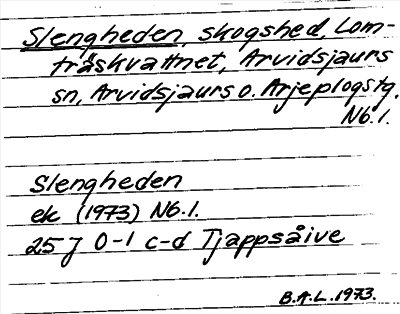 Slengheden, skogshed, Lom-
träskvattnet, Arvidsjaurs
sn, Arvidsjaurs o. Arjeplogs tg.
Nb.l.
Slengheden
ek (1973) Nb.l.
25 J 0-1 c-d Tjappsåive
B.A.L. 1973.